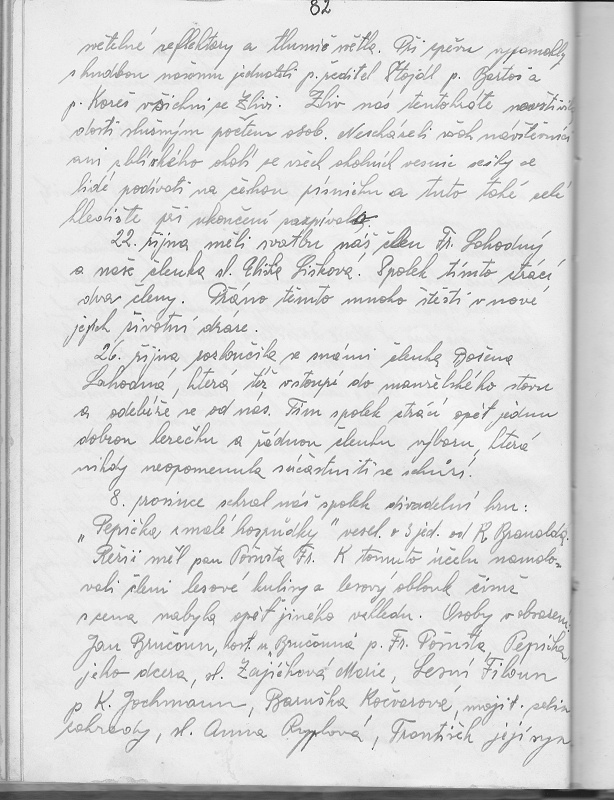 82
světelné reflektory a tlumič světla. Při zpěvu vypomohly
s hudbou našemu jednateli p. ředitel Stejdl p. Bartoš a
p. Koreš všichni ze Zlivi. Zliv nás tentokráte navštívila
dosti slušným počtem osob. Nescházeli však návštěvníci
ani z blízkého okolí ze všech okolních vesnic sešly se
lidé podívati na českou písničku a tuto také celé
hlediště při ukončení zazpívalo.
22. října měli svatbu náš člen Fr. Lahodný
a naše členka sl. Eliška Lišková. Spolek tímto ztrácí
dva členy. Přáno těmto mnoho štěstí v nové
jejich životní dráze.
26. října rozloučila se s námi členka Božena
Lahodná, která též vstoupí do manželského stavu
a odebéře se od nás. Tím spolek ztrácí opět jednu
dobrou herečku a řádnou členku výboru, která
nikdy neopomenula súčastniti se schůzí.
8. prosince sehrál náš spolek divadelní hru:
„Pepička z malé hospůdky" vesel. o 3 jed. od K. Branalda.
Režii měl pan Pörnsta Fr. K tomuto účelu namalo-
vali členi lesové kulisy a lesový oblouk čímž
scena nabyla opět jiného vzhledu. Osoby v obrazení:
Jan Bručoun, host. u „Bručounů p. Fr. Pörnsta, Pepička
jeho dcera, sl. Zajíčková Marie, Lesní Filoun
p K. Jochmann, Baruška Kočvarová, majit. zelin
zahrady, sl. Anna Ryplová, František její syn